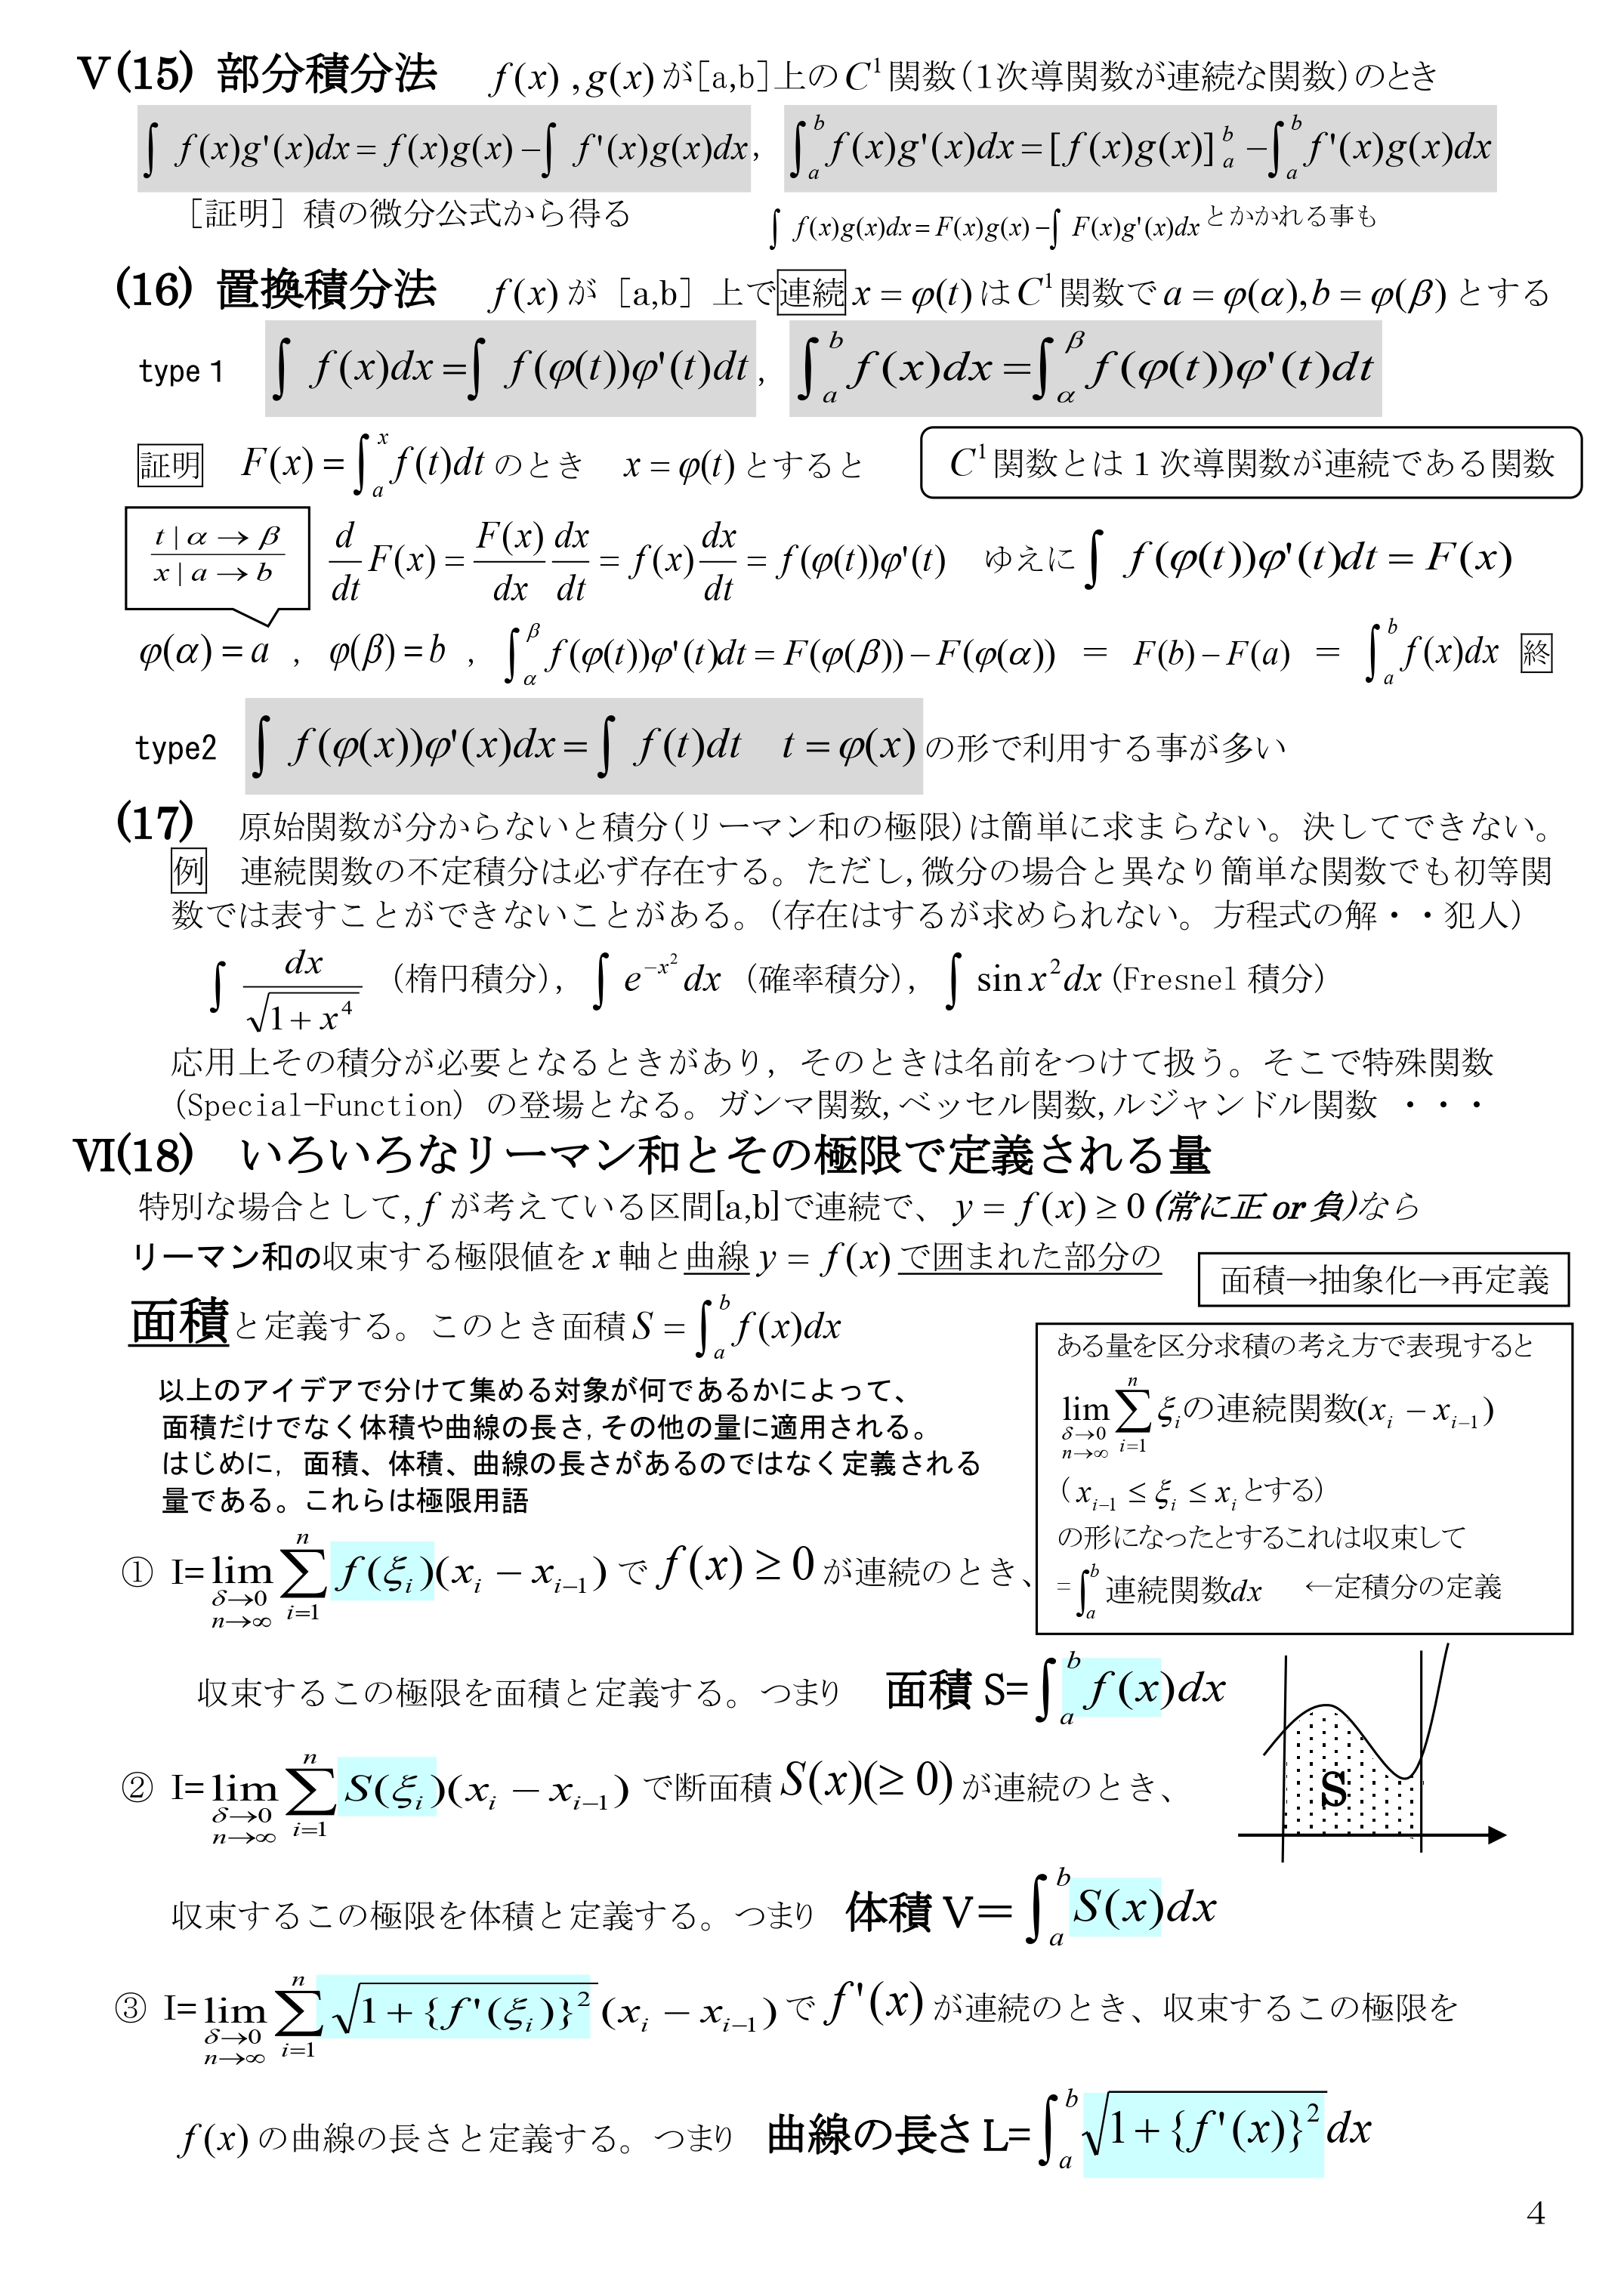 Ⅴ(15) 部分積分法　f(x) , g(x) が[a,b]上の C¹ 関数(1次導関数が連続な関数)のとき
∫ f(x)g'(x)dx = f(x)g(x) − ∫ f'(x)g(x)dx,　∫_a^b f(x)g'(x)dx = [f(x)g(x)]_a^b − ∫_a^b f'(x)g(x)dx
［証明］積の微分公式から得る　∫ f(x)g(x)dx = F(x)g(x) − ∫ F(x)g'(x)dx とかかれる事も
(16) 置換積分法　f(x) が［a,b］上で連続 x = φ(t) は C¹ 関数で a = φ(α), b = φ(β) とする
type 1　∫ f(x)dx = ∫ f(φ(t))φ'(t)dt ,　∫_a^b f(x)dx = ∫_α^β f(φ(t))φ'(t)dt
証明　F(x) = ∫_a^x f(t)dt のとき　x = φ(t) とすると
C¹ 関数とは 1 次導関数が連続である関数
t | α → β
x | a → b
d/dt F(x) = F(x)/dx dx/dt = f(x) dx/dt = f(φ(t))φ'(t)　ゆえに ∫ f(φ(t))φ'(t)dt = F(x)
φ(α) = a , φ(β) = b , ∫_α^β f(φ(t))φ'(t)dt = F(φ(β)) − F(φ(α)) = F(b) − F(a) = ∫_a^b f(x)dx 終
type2　∫ f(φ(x))φ'(x)dx = ∫ f(t)dt　t = φ(x) の形で利用する事が多い
(17)　原始関数が分からないと積分(リーマン和の極限)は簡単に求まらない。決してできない。
例　連続関数の不定積分は必ず存在する。ただし,微分の場合と異なり簡単な関数でも初等関
数では表すことができないことがある。(存在はするが求められない。方程式の解・・犯人)
∫ dx/√(1+x⁴) (楕円積分), ∫ e^{−x²} dx (確率積分), ∫ sin x² dx (Fresnel 積分)
応用上その積分が必要となるときがあり，そのときは名前をつけて扱う。そこで特殊関数
(Special-Function) の登場となる。ガンマ関数,ベッセル関数,ルジャンドル関数 ・・・
Ⅵ(18)　いろいろなリーマン和とその極限で定義される量
特別な場合として, f が考えている区間[a,b]で連続で、 y = f(x) ≥ 0 (常に正 or 負)なら
リーマン和の収束する極限値を x 軸と曲線 y = f(x) で囲まれた部分の
面積→抽象化→再定義
面積と定義する。このとき面積 S = ∫_a^b f(x)dx
以上のアイデアで分けて集める対象が何であるかによって、
面積だけでなく体積や曲線の長さ,その他の量に適用される。
はじめに，面積、体積、曲線の長さがあるのではなく定義される
量である。これらは極限用語
ある量を区分求積の考え方で表現すると
lim_{δ→0 n→∞} Σ_{i=1}^n ξ_i の連続関数(x_i − x_{i−1})
( x_{i−1} ≤ ξ_i ≤ x_i とする)
の形になったとするこれは収束して
= ∫_a^b 連続関数dx　←定積分の定義
① I= lim_{δ→0 n→∞} Σ_{i=1}^n f(ξ_i)(x_i − x_{i−1}) で f(x) ≥ 0 が連続のとき、
収束するこの極限を面積と定義する。つまり　面積 S= ∫_a^b f(x)dx
② I= lim_{δ→0 n→∞} Σ_{i=1}^n S(ξ_i)(x_i − x_{i−1}) で断面積 S(x)(≥ 0) が連続のとき、
S
収束するこの極限を体積と定義する。つまり　体積 V＝ ∫_a^b S(x)dx
③ I= lim_{δ→0 n→∞} Σ_{i=1}^n √(1+{f'(ξ_i)}²) (x_i − x_{i−1}) で f'(x) が連続のとき、収束するこの極限を
f(x) の曲線の長さと定義する。つまり　曲線の長さ L= ∫_a^b √(1+{f'(x)}²) dx
4